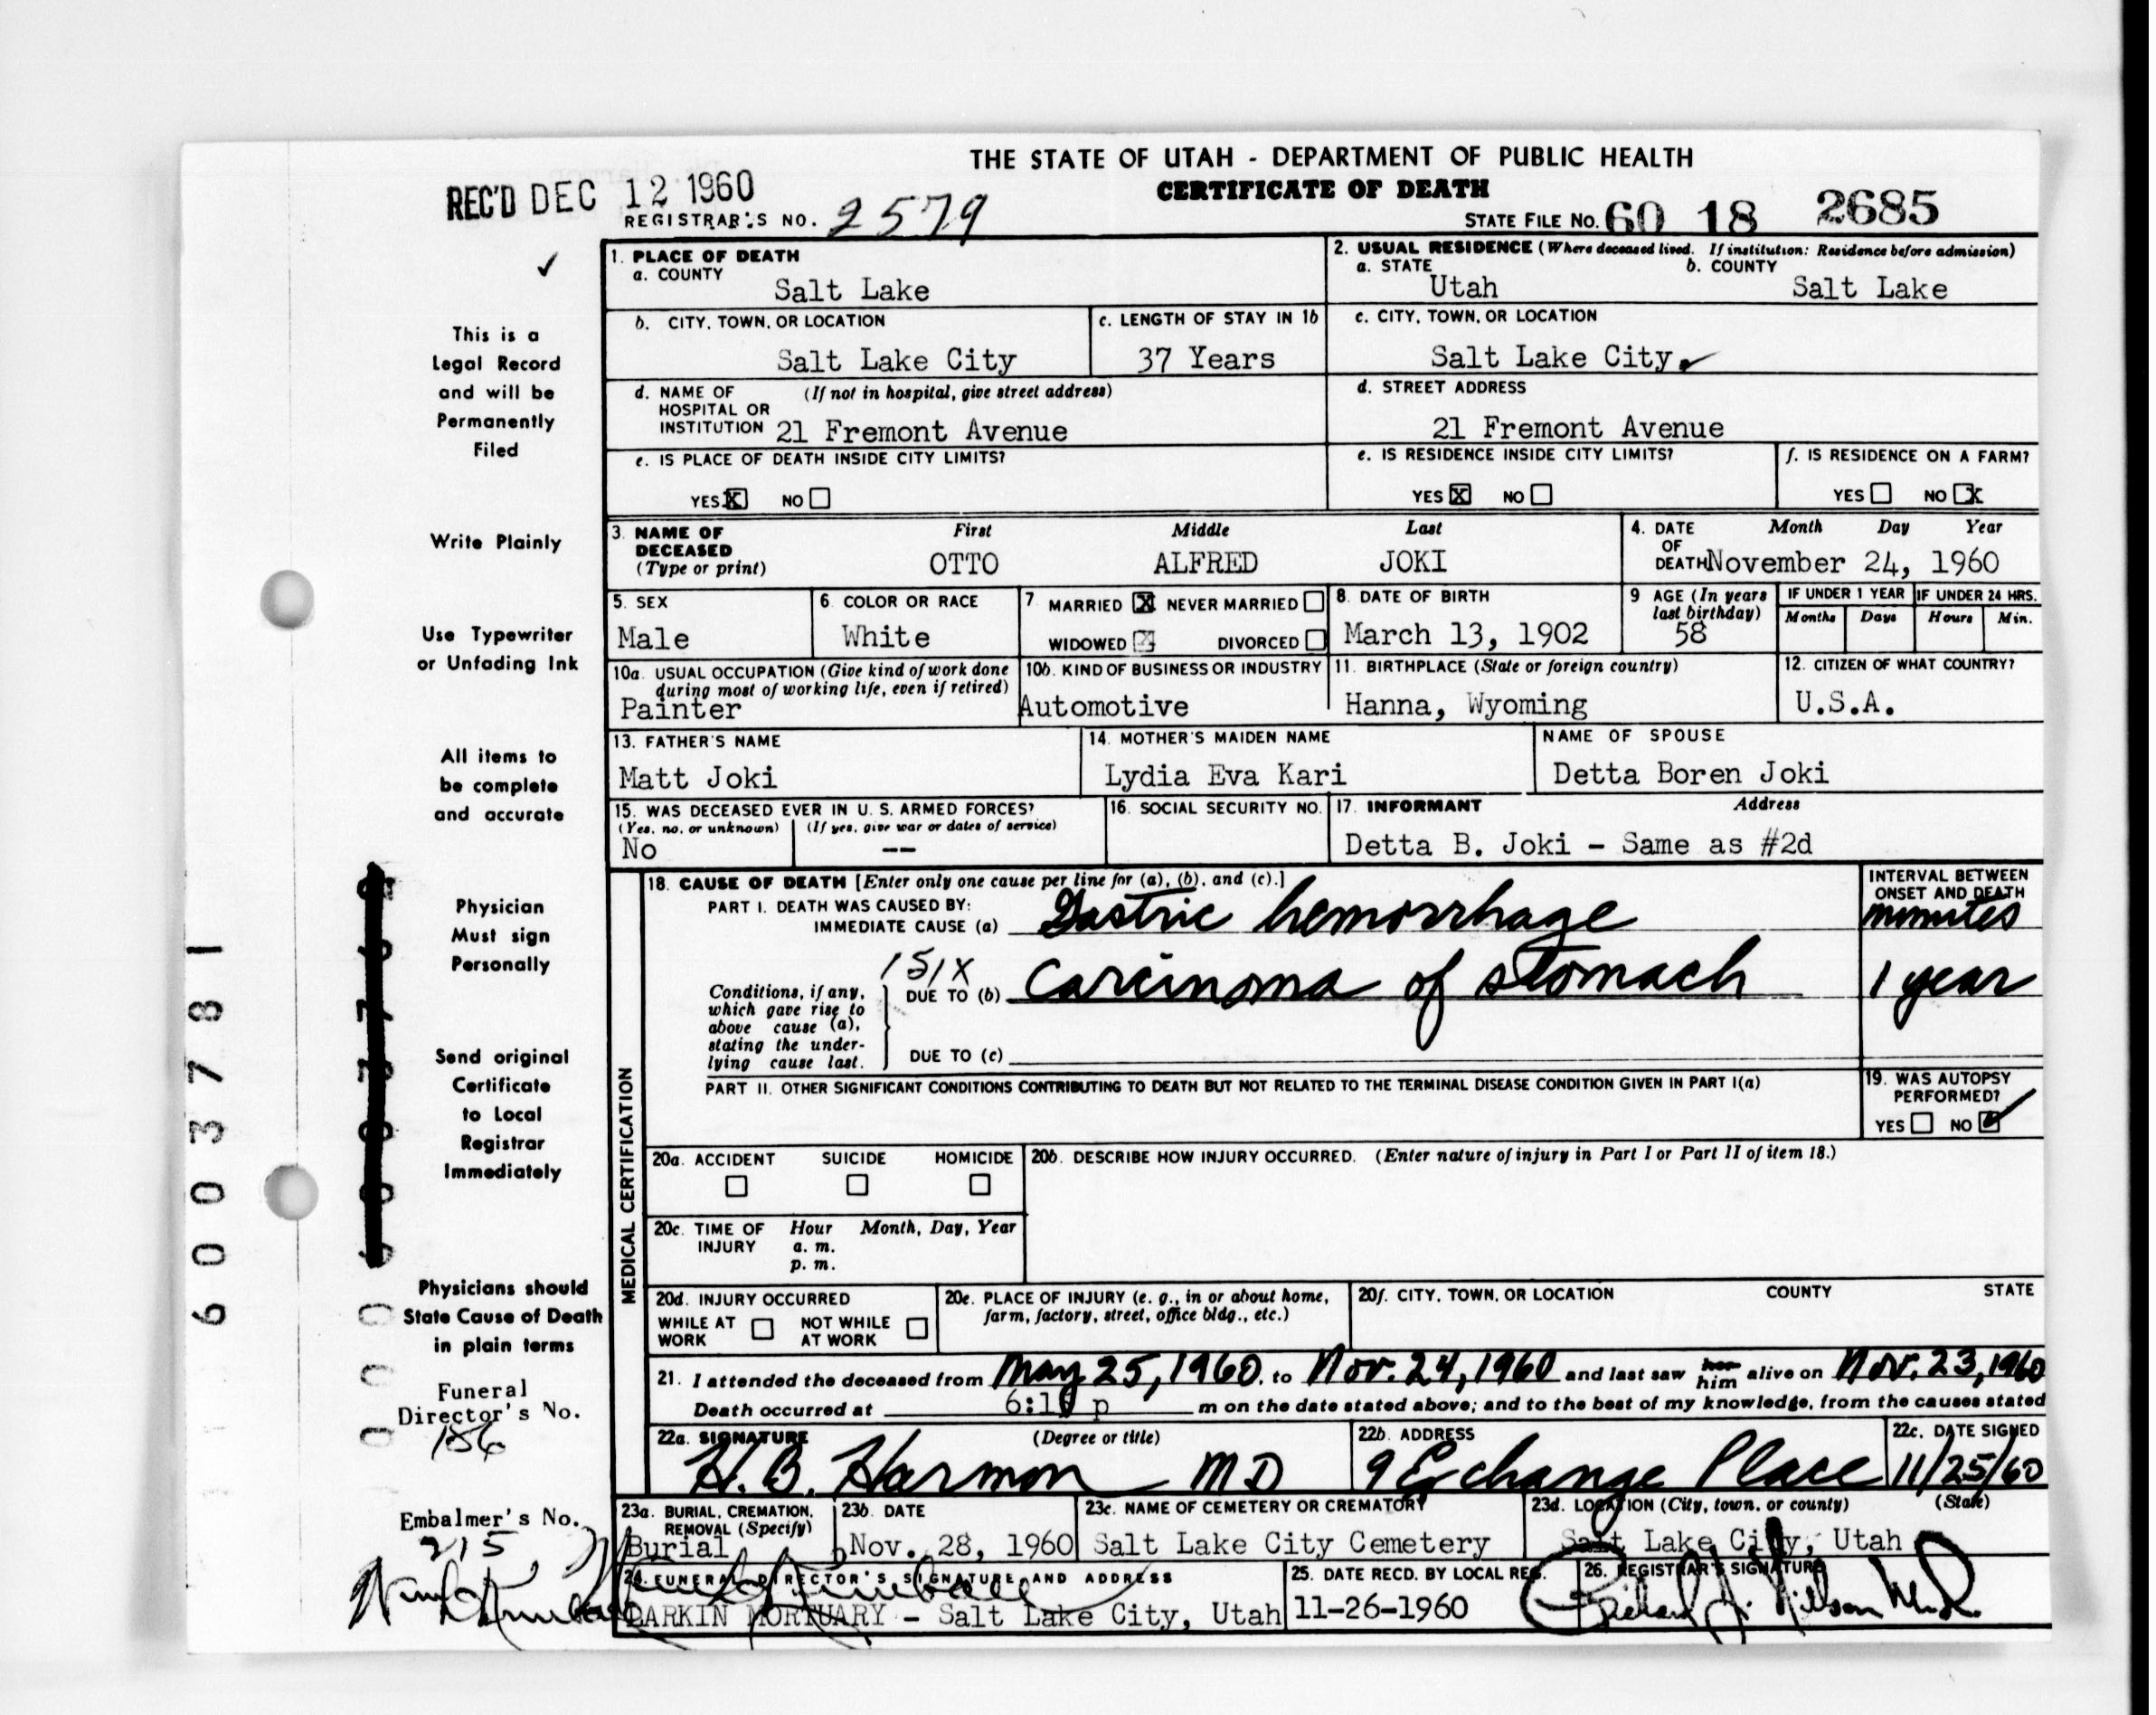 THE STATE OF UTAH - DEPARTMENT OF PUBLIC HEALTH
CERTIFICATE OF DEATH
REC'D DEC 12 1960
REGISTRAR'S NO. 2579
STATE FILE NO. 60 18 2685
This is a
Legal Record
and will be
Permanently
Filed
Write Plainly
Use Typewriter
or Unfading Ink
All items to
be complete
and accurate
Physician
Must sign
Personally
Send original
Certificate
to Local
Registrar
Immediately
Physicians should
State Cause of Death
in plain terms
Funeral
Director's No.
186
Embalmer's No.
215
6003781
1. PLACE OF DEATH
a. COUNTY
Salt Lake
2. USUAL RESIDENCE (Where deceased lived. If institution: Residence before admission)
a. STATE b. COUNTY
Utah Salt Lake
b. CITY, TOWN, OR LOCATION
Salt Lake City
c. LENGTH OF STAY IN 1b
37 Years
c. CITY, TOWN, OR LOCATION
Salt Lake City
d. NAME OF (If not in hospital, give street address)
HOSPITAL OR
INSTITUTION 21 Fremont Avenue
d. STREET ADDRESS
21 Fremont Avenue
e. IS PLACE OF DEATH INSIDE CITY LIMITS?
YES X NO
e. IS RESIDENCE INSIDE CITY LIMITS?
YES X NO
f. IS RESIDENCE ON A FARM?
YES NO X
3. NAME OF First Middle Last
DECEASED
(Type or print) OTTO ALFRED JOKI
4. DATE Month Day Year
OF
DEATH November 24, 1960
5. SEX
Male
6. COLOR OR RACE
White
7. MARRIED X NEVER MARRIED
WIDOWED DIVORCED
8. DATE OF BIRTH
March 13, 1902
9 AGE (In years
last birthday)
58
IF UNDER 1 YEAR IF UNDER 24 HRS.
Months Days Hours Min.
10a. USUAL OCCUPATION (Give kind of work done
during most of working life, even if retired)
Painter
10b. KIND OF BUSINESS OR INDUSTRY
Automotive
11. BIRTHPLACE (State or foreign country)
Hanna, Wyoming
12. CITIZEN OF WHAT COUNTRY?
U.S.A.
13. FATHER'S NAME
Matt Joki
14. MOTHER'S MAIDEN NAME
Lydia Eva Kari
NAME OF SPOUSE
Detta Boren Joki
15. WAS DECEASED EVER IN U. S. ARMED FORCES?
(Yes, no, or unknown) (If yes, give war or dates of service)
No --
16. SOCIAL SECURITY NO.
17. INFORMANT Address
Detta B. Joki - Same as #2d
MEDICAL CERTIFICATION
18. CAUSE OF DEATH [Enter only one cause per line for (a), (b), and (c).]
PART I. DEATH WAS CAUSED BY:
IMMEDIATE CAUSE (a) Gastric hemorrhage
INTERVAL BETWEEN
ONSET AND DEATH
minutes
151X
Conditions, if any,
which gave rise to
above cause (a),
stating the under-
lying cause last.
DUE TO (b) Carcinoma of stomach
1 year
DUE TO (c)
PART II. OTHER SIGNIFICANT CONDITIONS CONTRIBUTING TO DEATH BUT NOT RELATED TO THE TERMINAL DISEASE CONDITION GIVEN IN PART I(a)
19. WAS AUTOPSY
PERFORMED?
YES NO ✓
20a. ACCIDENT SUICIDE HOMICIDE
20b. DESCRIBE HOW INJURY OCCURRED. (Enter nature of injury in Part I or Part II of item 18.)
20c. TIME OF Hour Month, Day, Year
INJURY a. m.
p. m.
20d. INJURY OCCURRED
WHILE AT NOT WHILE
WORK AT WORK
20e. PLACE OF INJURY (e. g., in or about home,
farm, factory, street, office bldg., etc.)
20f. CITY, TOWN, OR LOCATION COUNTY STATE
21. I attended the deceased from May 25, 1960, to Nov. 24, 1960 and last saw her him alive on Nov. 23, 1960
Death occurred at p m on the date stated above; and to the best of my knowledge, from the causes stated
22a. SIGNATURE (Degree or title)
H. B. Harmon MD
22b. ADDRESS
9 Exchange Place
22c. DATE SIGNED
11/25/60
23a. BURIAL, CREMATION,
REMOVAL (Specify)
Burial
23b. DATE
Nov. 28, 1960
23c. NAME OF CEMETERY OR CREMATORY
Salt Lake City Cemetery
23d. LOCATION (City, town, or county) (State)
Salt Lake City, Utah
24. FUNERAL DIRECTOR'S SIGNATURE AND ADDRESS
LARKIN MORTUARY - Salt Lake City, Utah
25. DATE RECD. BY LOCAL REG.
11-26-1960
26. REGISTRAR'S SIGNATURE